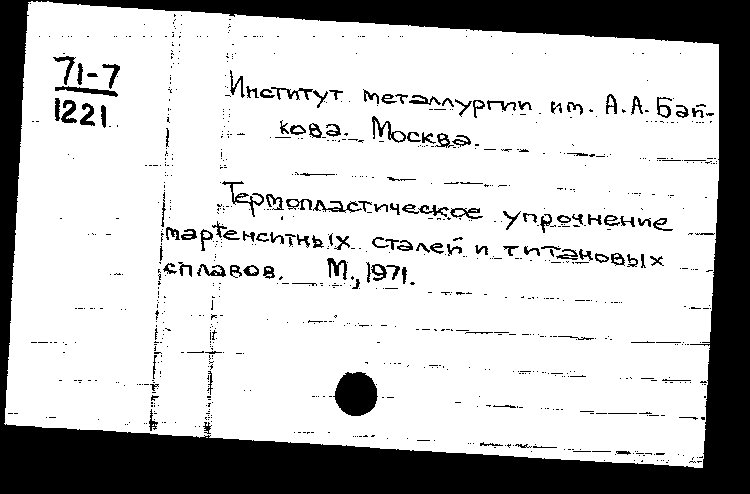 71-7
1221
Институт металлургии им. А.А.Бай-
кова. Москва.
Термопластическое упрочнение
мартенситных сталей и титановых
сплавов. М., 1971.